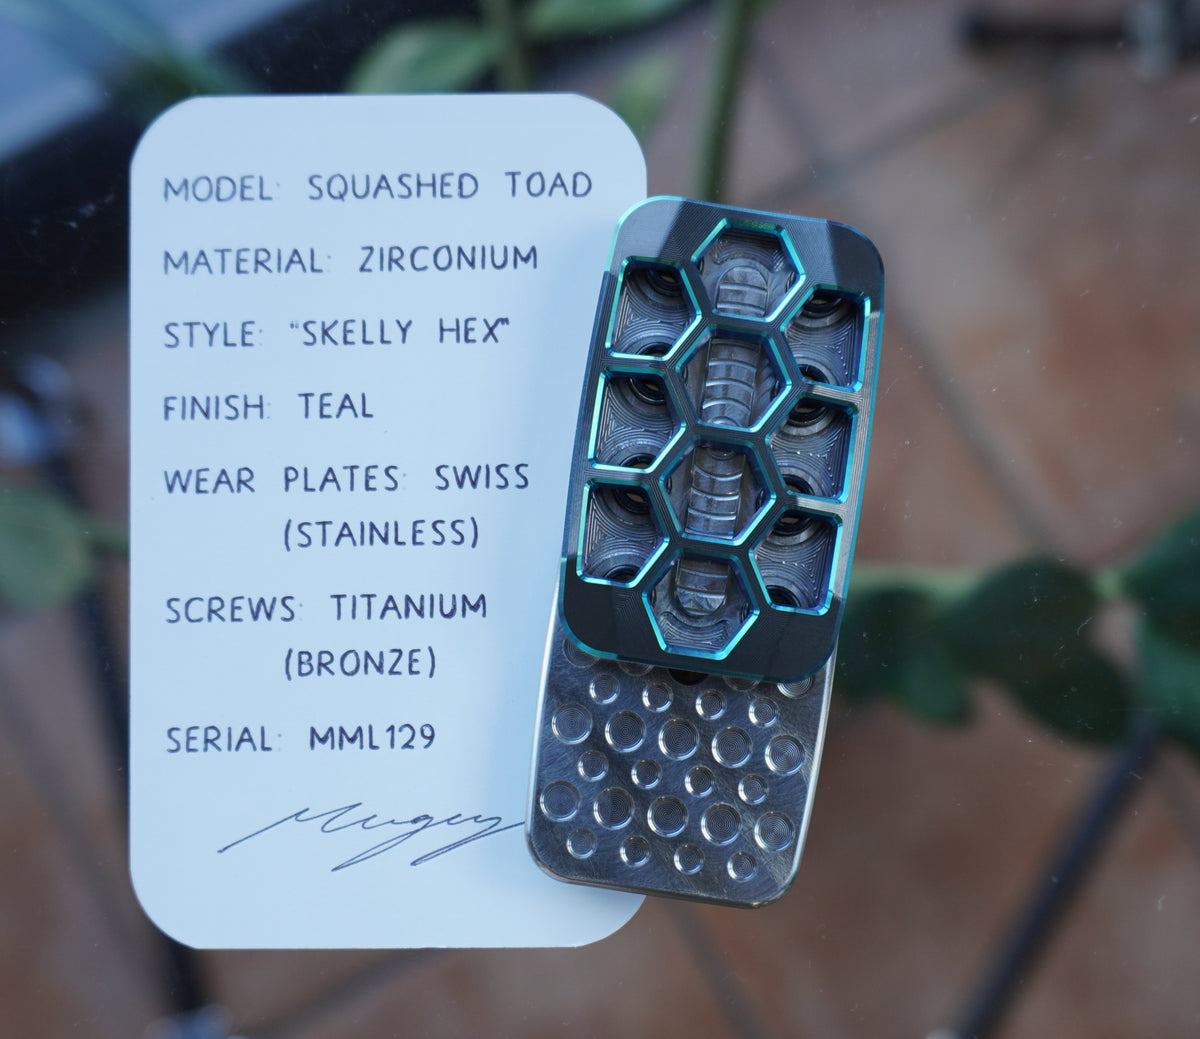 MODEL: SQUASHED TOAD
MATERIAL: ZIRCONIUM
STYLE: "SKELLY HEX"
FINISH: TEAL
WEAR PLATES: SWISS
(STAINLESS)
SCREWS: TITANIUM
(BRONZE)
SERIAL: MML129